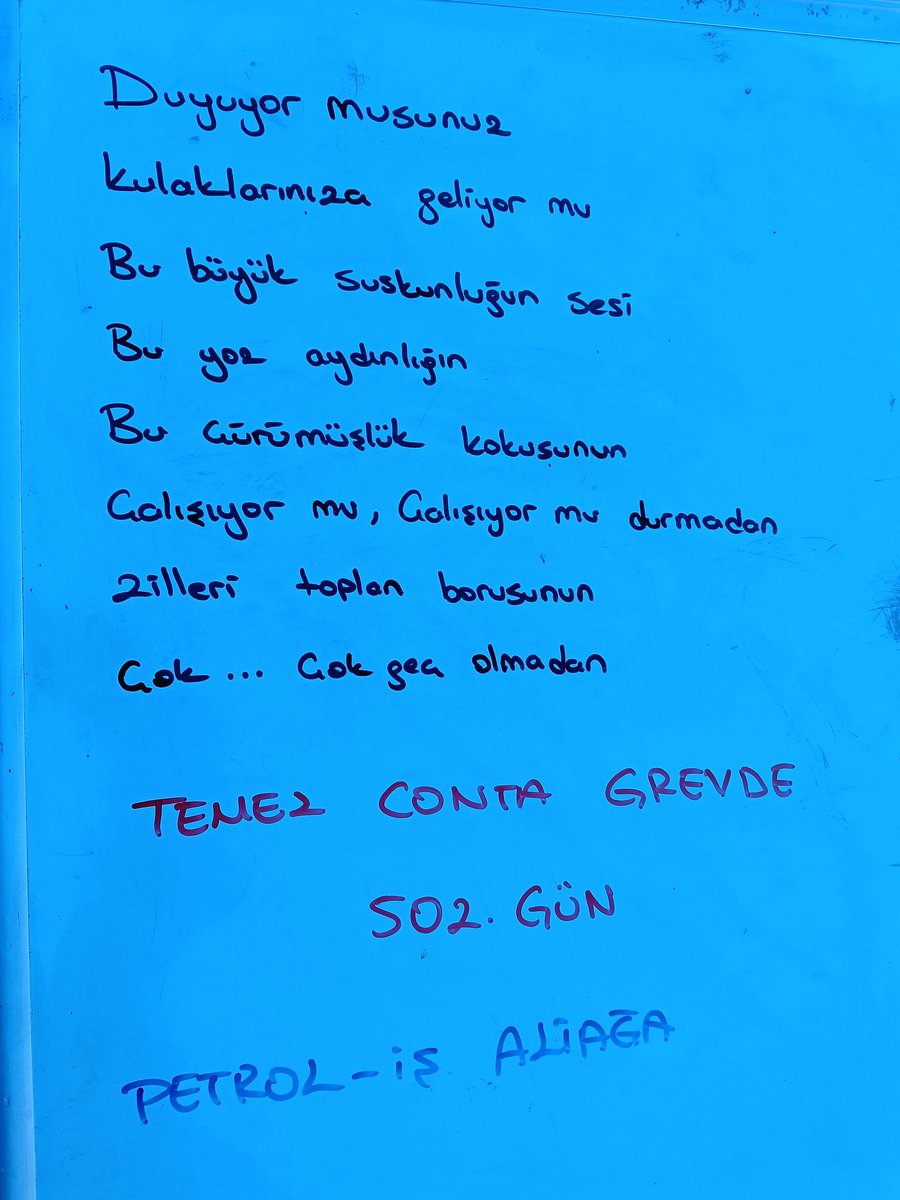 Duyuyor musunuz
kulaklarınıza geliyor mu
Bu büyük suskunluğun sesi
Bu yoz aydınlığın
Bu çürümüşlük kokusunun
Çalışıyor mu, Çalışıyor mu durmadan
zilleri toplan borusunun
Çok... Çok geç olmadan
TEMEZ CONTA GREVDE
502. GÜN
PETROL-İŞ ALİAĞA